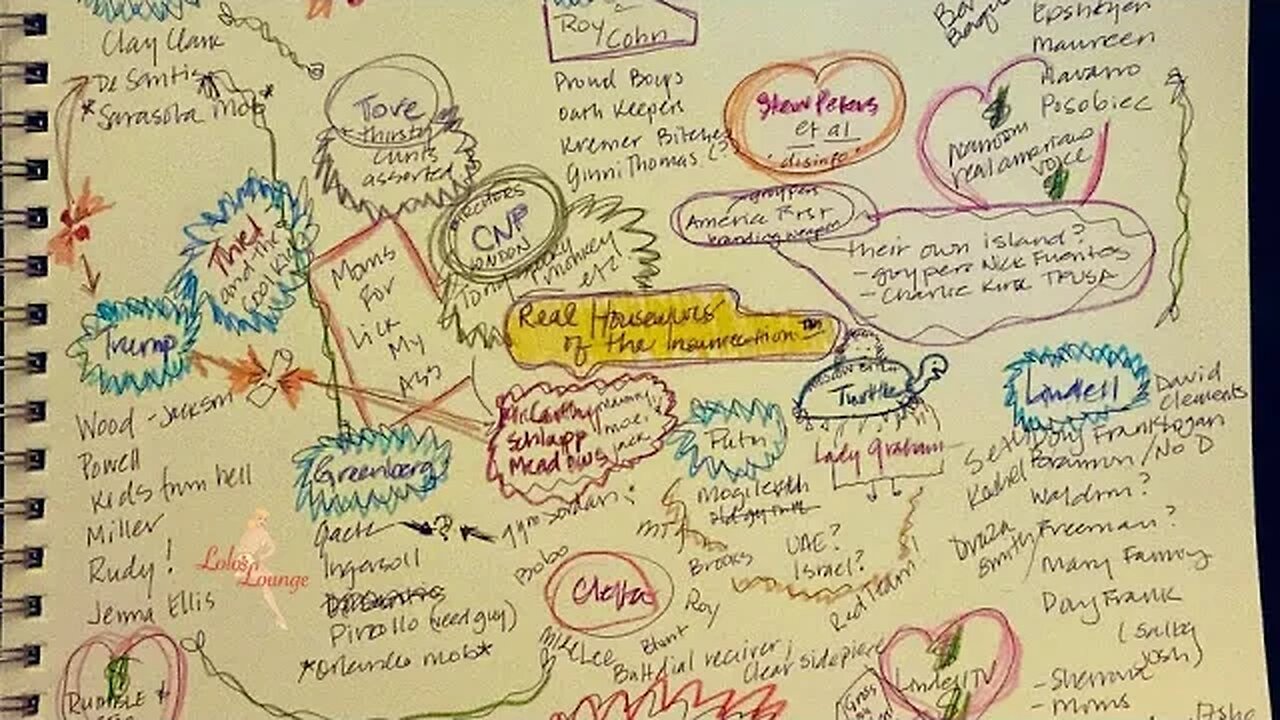 Clay Clark
DeSantis
*Sarasota mob*
Roy
Cohn
Proud Boys
Oath Keepers
Kremer Bitches
Ginni Thomas (?)
Maureen
Navarro
Posobiec
Tore
thirsty
cunts
assorted
Stew Peters
et al
"disinfo"
real america's
voice
CNP
LONDON
monkey
etc!
groypers
America First
branding weapon
their own island?
- groypers Nick Fuentes
- Charlie Kirk TPUSA
Thied
and the
Cool Kids
Moms
For
Lick
My
Ass
Real Housewives
of the insurrection TM
Trump
Turtle
Lindell
David
Clements
Wood - Jackson
Powell
Kids from hell
Miller
Rudy!
Jenna Ellis
McCarthy
Schlapp
Meadows
Lady Graham
Greenberg
Gaetz
?
Gym Jordan:
Ingersoll
Pirozzolo (weed guy)
*Orlando mob*
Lolo's
Lounge
Mogilevich
Brooks
UAE?
Israel?
Red Team!
Bobo
Cleta
Roy
Blunt
Mike Lee
Buttdial receiver;
Clear sidepiece
Seth
Rachel
Waldron?
Freeman?
Draza
Smith
Mary Fanning
Day Frank
(Salty
Josh)
- Moms
Lindell TV
Rumble +